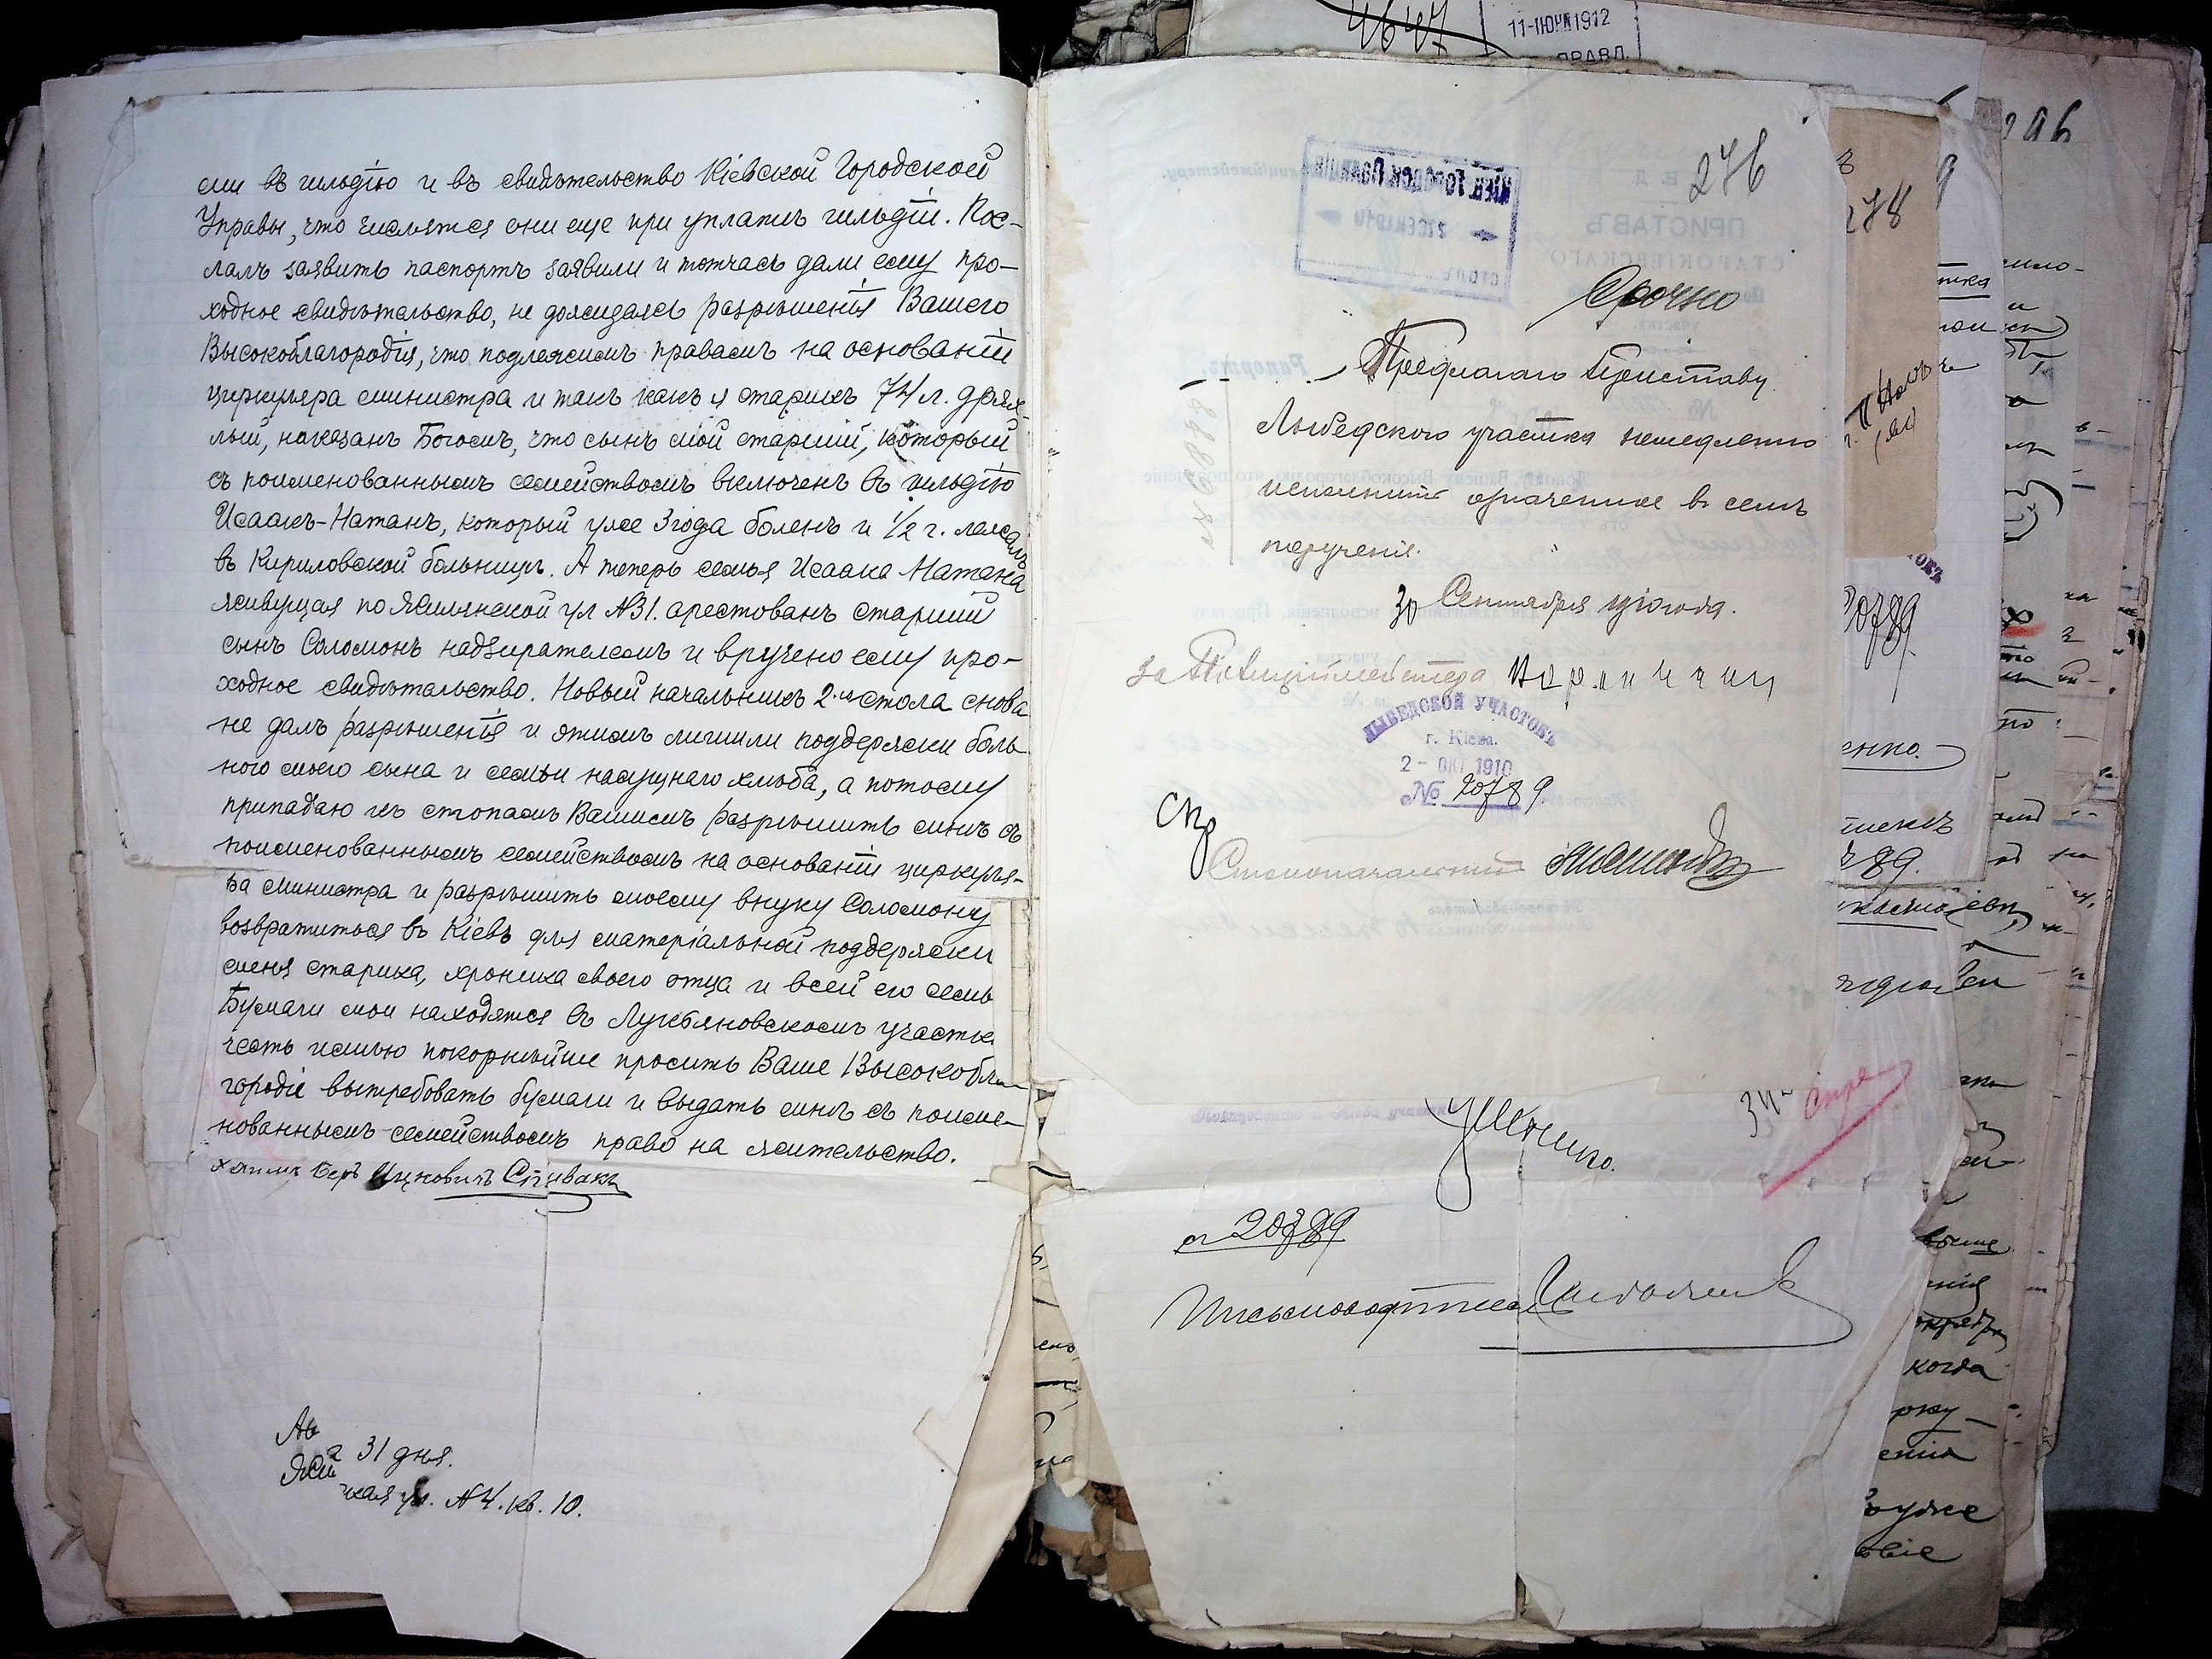 ми въ гильдію и въ свидѣтельство Кіевской Городской
Управы, что числятся они еще при уплатѣ гильдіи. Пос-
лалъ заявить паспортъ заявили и тотчасъ дали ему про-
ходное свидѣтельство, не дожидаясь разрѣшенія Вашего
Высокоблагородія, что подлежимъ правамъ на основаніи
циркуляра министра и такъ какъ я старикъ 74 л. дрях-
лый, наказанъ Богомъ, что сынъ мой старшій, который
съ поименованнымъ семействомъ включенъ въ гильдію
Исаакъ-Натанъ, который уже 3 года боленъ и 1/2 г. лежалъ
въ Кириловской больницѣ. А теперь семья Исаака Натана
живущая по Жилянской ул №31. арестованъ старшій
сынъ Соломонъ надзирателемъ и вручено ему про-
ходное свидѣтельство. Новый начальникъ 2-го стола снова
не далъ разрѣшенія и этимъ лишили поддержки боль-
ного моего сына и семьи насущнаго хлѣба, а потому
припадаю къ стопамъ Вашимъ разрѣшить мнѣ съ
поименованнымъ семействомъ на основаніи циркуля-
ра министра и разрѣшить моему внуку Соломону
возвратиться въ Кіевъ для матеріальной поддержки
меня старика, хроника своего отца и всей его семь
Бумаги мои находятся въ Лукьяновскомъ участкѣ
честь имѣю покорнѣйше просить Ваше Высокобла-
городіе вытребовать бумаги и выдать мнѣ съ поиме-
нованнымъ семействомъ право на жительство.
Хаимъ Беръ Ицковичъ Спивакъ
Ав
а 31 дня.
Жил
ская ул. №4. кв. 10.
4647
11-ІЮНЯ 1912
276
278
Срочно
Предлагаю Приставу
Лыбедского участка немедленно
исполнить означенное въ семъ
порученіе.
30 Сентября 1910 года.
за Полиціймейстера
ЛЫБЕДСКОЙ УЧАСТОКЪ
г. Кіева.
2 - ОКТ 1910
№ 20789
Скр
Столоначальникъ
20789
№ 20789
Письмоводитель
когда